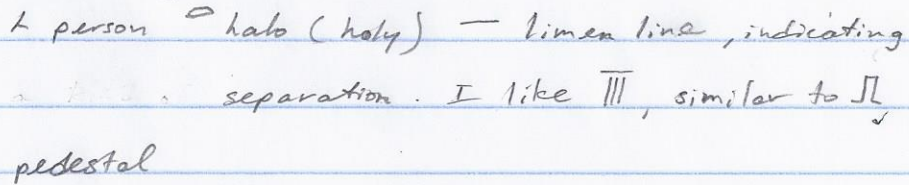 人 person ⌓ halo (holy) — limen line, indicating
separation. I like 𝍫̅, similar to ⎍,
pedestal